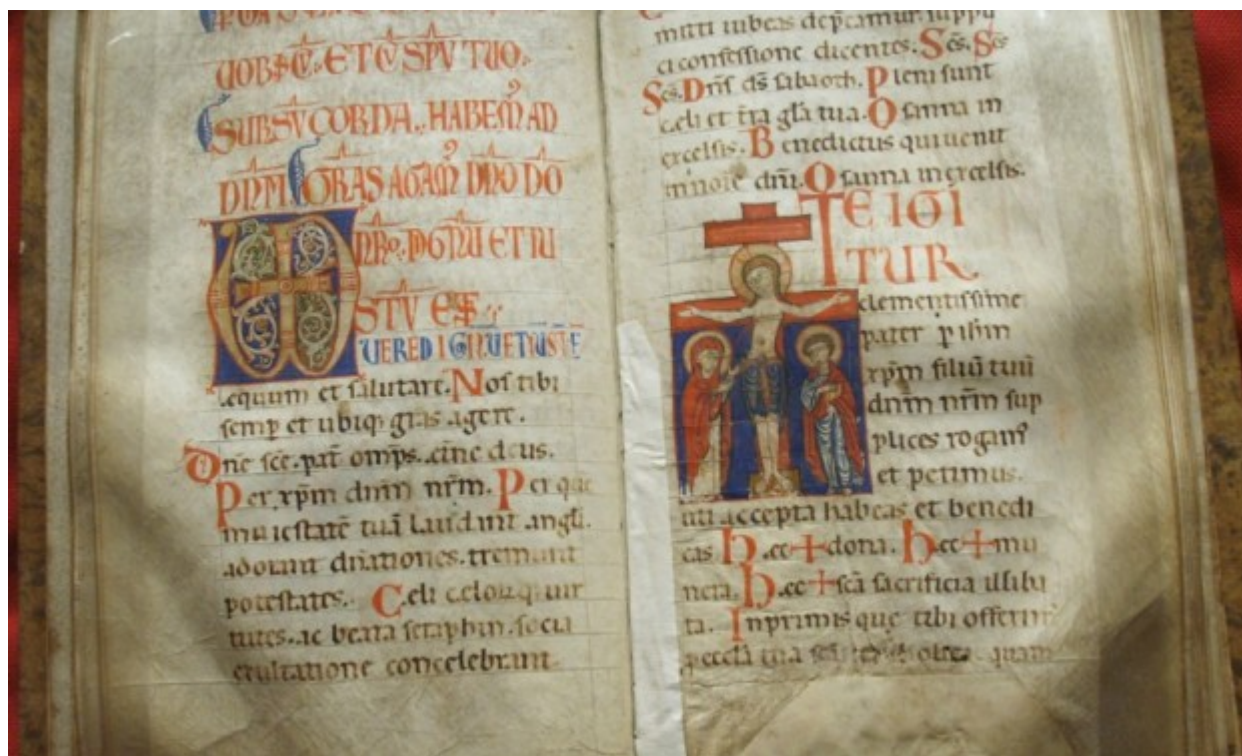 UOBIC. ET CV SPV TUO.
SURSV CORDA. HABEM AD
DNM. GRAS AGAM DNO DO
NRO. DIGNU ET IU
STU EST
UERE DIGNU ET IUST E
equum et salutare. Nos tibi
semp et ubiq gras agere.
Dne sce. pat omps. eine deus.
Per xpm dnm nrm. Per que
maiestate tua laudant angli.
adorant dnationes. tremunt
potestates. Celi celorq uir
tutes. ac beata seraphin. socia
exultatione concelebrant.
mitti iubeas depcamur. suppli
ci confessione dicentes. Scs. Scs
Scs. Dns ds sabaoth. Pleni sunt
celi et tra gla tua. Osanna in
excelsis. Benedictus qui uenit
in noie dni. Osanna in excelsis.
TE IGI
TUR
clementissime
pater p ihm
xpm filiu tuu
dnm nrm sup
plices rogam
et petimus.
uti accepta habeas et benedi
cas hec + dona. hec + mu
nera. hec + sca sacrificia illiba
ta. Inprimis que tibi offerim
p eccla tua sca catholica quam